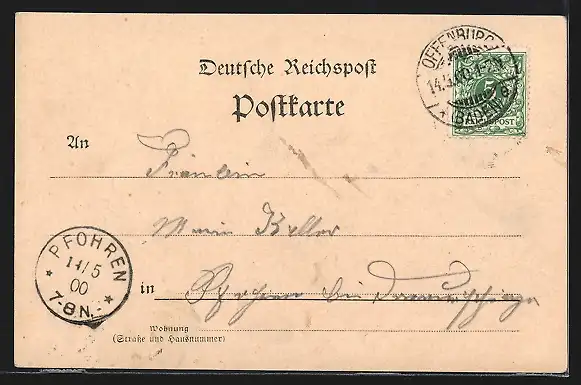 Deutsche Reichspost
Postkarte
OFFENBURG
(BADEN)
REICHSPOST
An
Fräulein
Marie Keller
in Pfohren bei Donaueschingen
PFOHREN
14/5
00
7-8 N.
Wohnung
(Straße und Hausnummer)